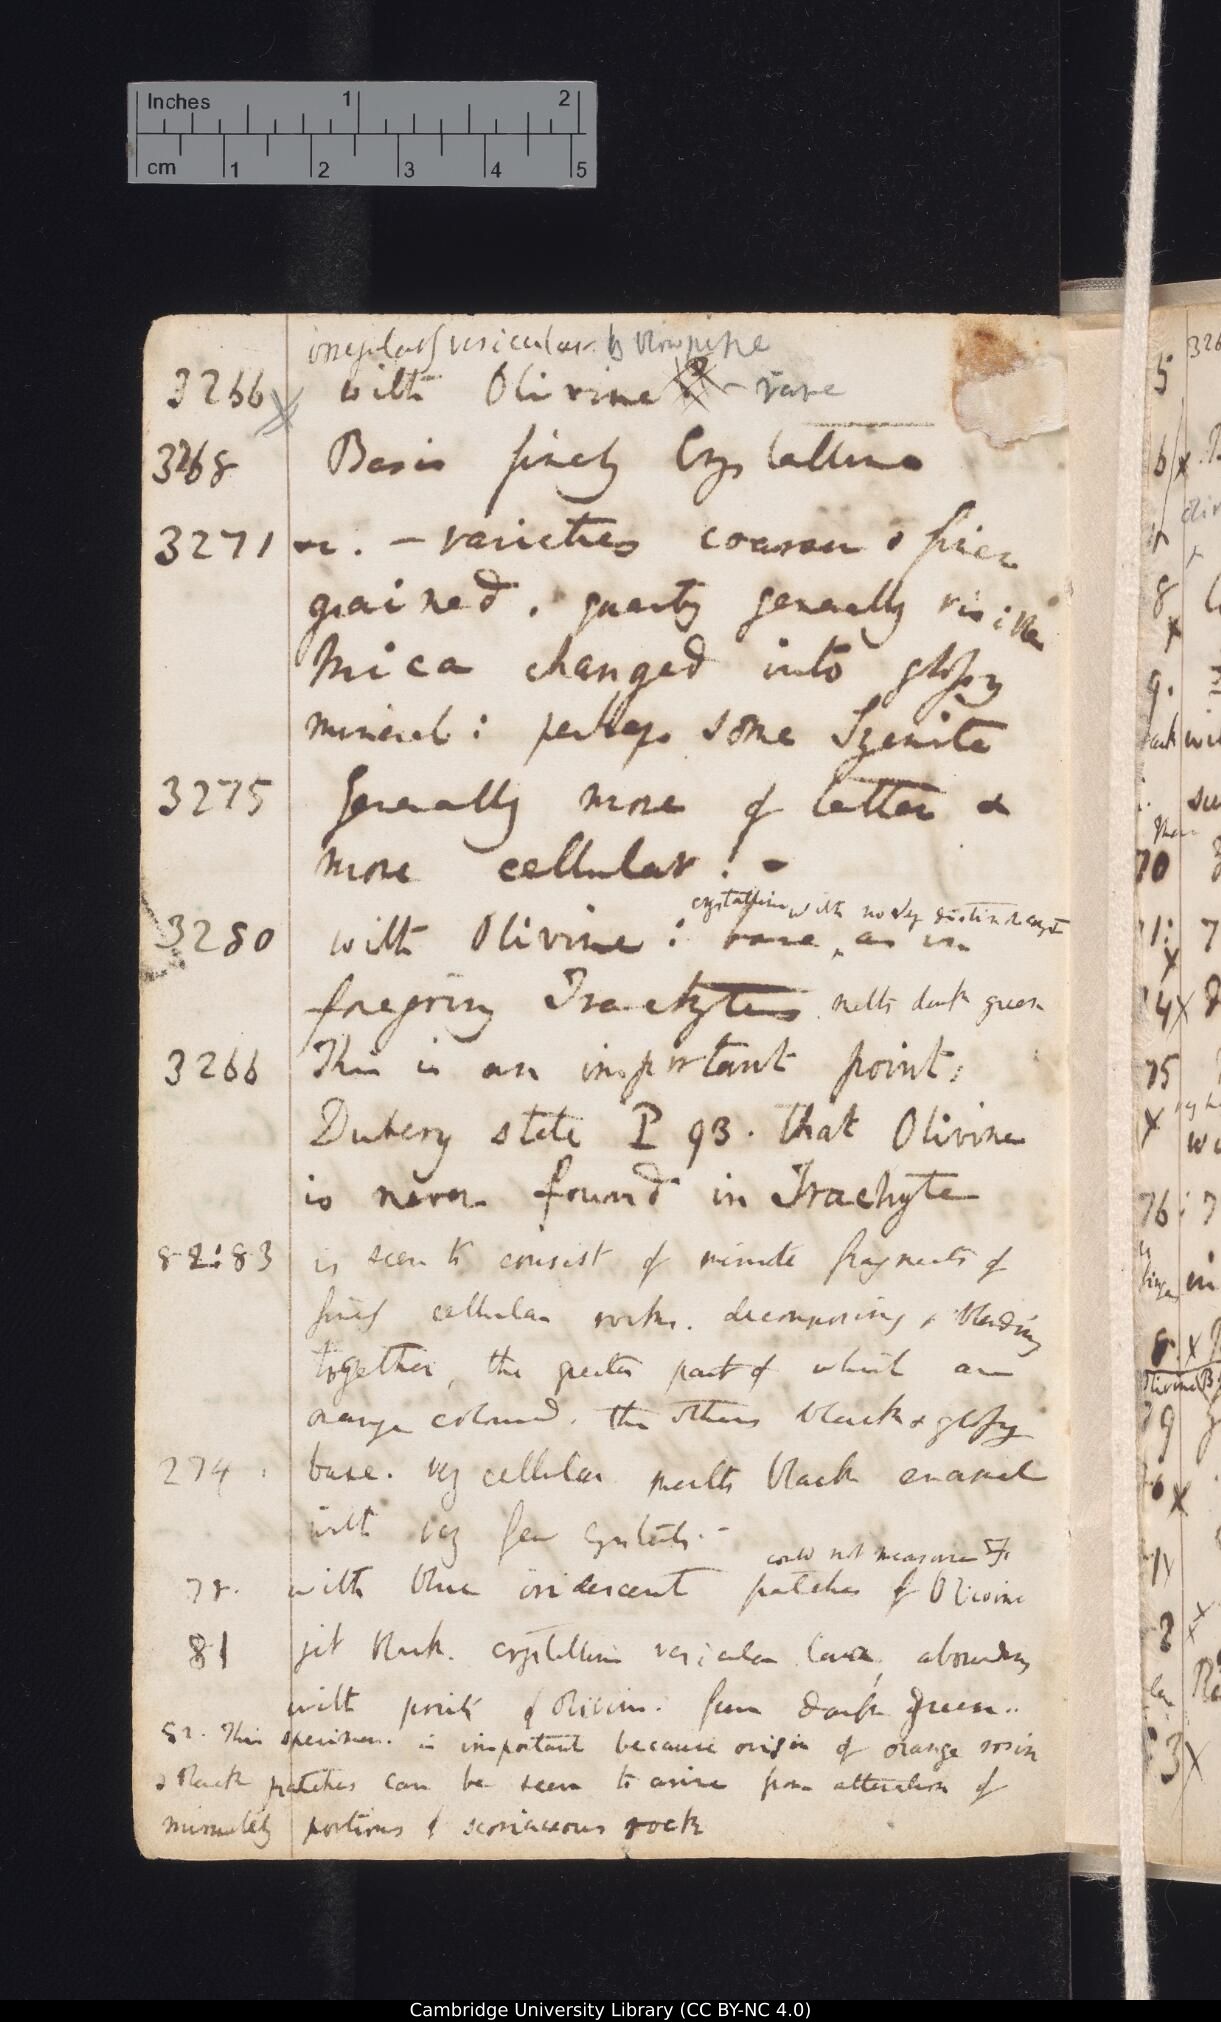 Inches 1 2
cm 1 2 3 4 5
irregularly vesicular. by blowpipe
3266 with Olivine — rare
3268 Basis finely Crystalline
3271 &c. — varieties coarser & finer
grained. quartz generally visible
Mica changed into glossy
mineral: perhaps some Syenite
3275 Generally more of latter &
more cellular! -
crystalline with no very distinct cryst
3280 with Olivine: base, as in
foregoing Trachytes melts dark green
3266 This is an important point,
Dubeny state P 93. that Olivine
is never found in Trachyte
82:83 is seen to consist of minute fragments of
finely cellular rocks. decomposing & blending
together, the greater part of which are
orange coloured. the others black & glossy
274. base. very cellular melts black enamel
with very few crystals. -
could not measure
78. with blue iridescent patches of Olivine
81 jet black. crystalline vesicular lava, abounding
with points of olivine. fuse dark green..
82. This specimen. is important because origin of orange resin
& black patches can be seen to arise from alteration of
minutely portions of scoriaceous rock
Cambridge University Library (CC BY-NC 4.0)